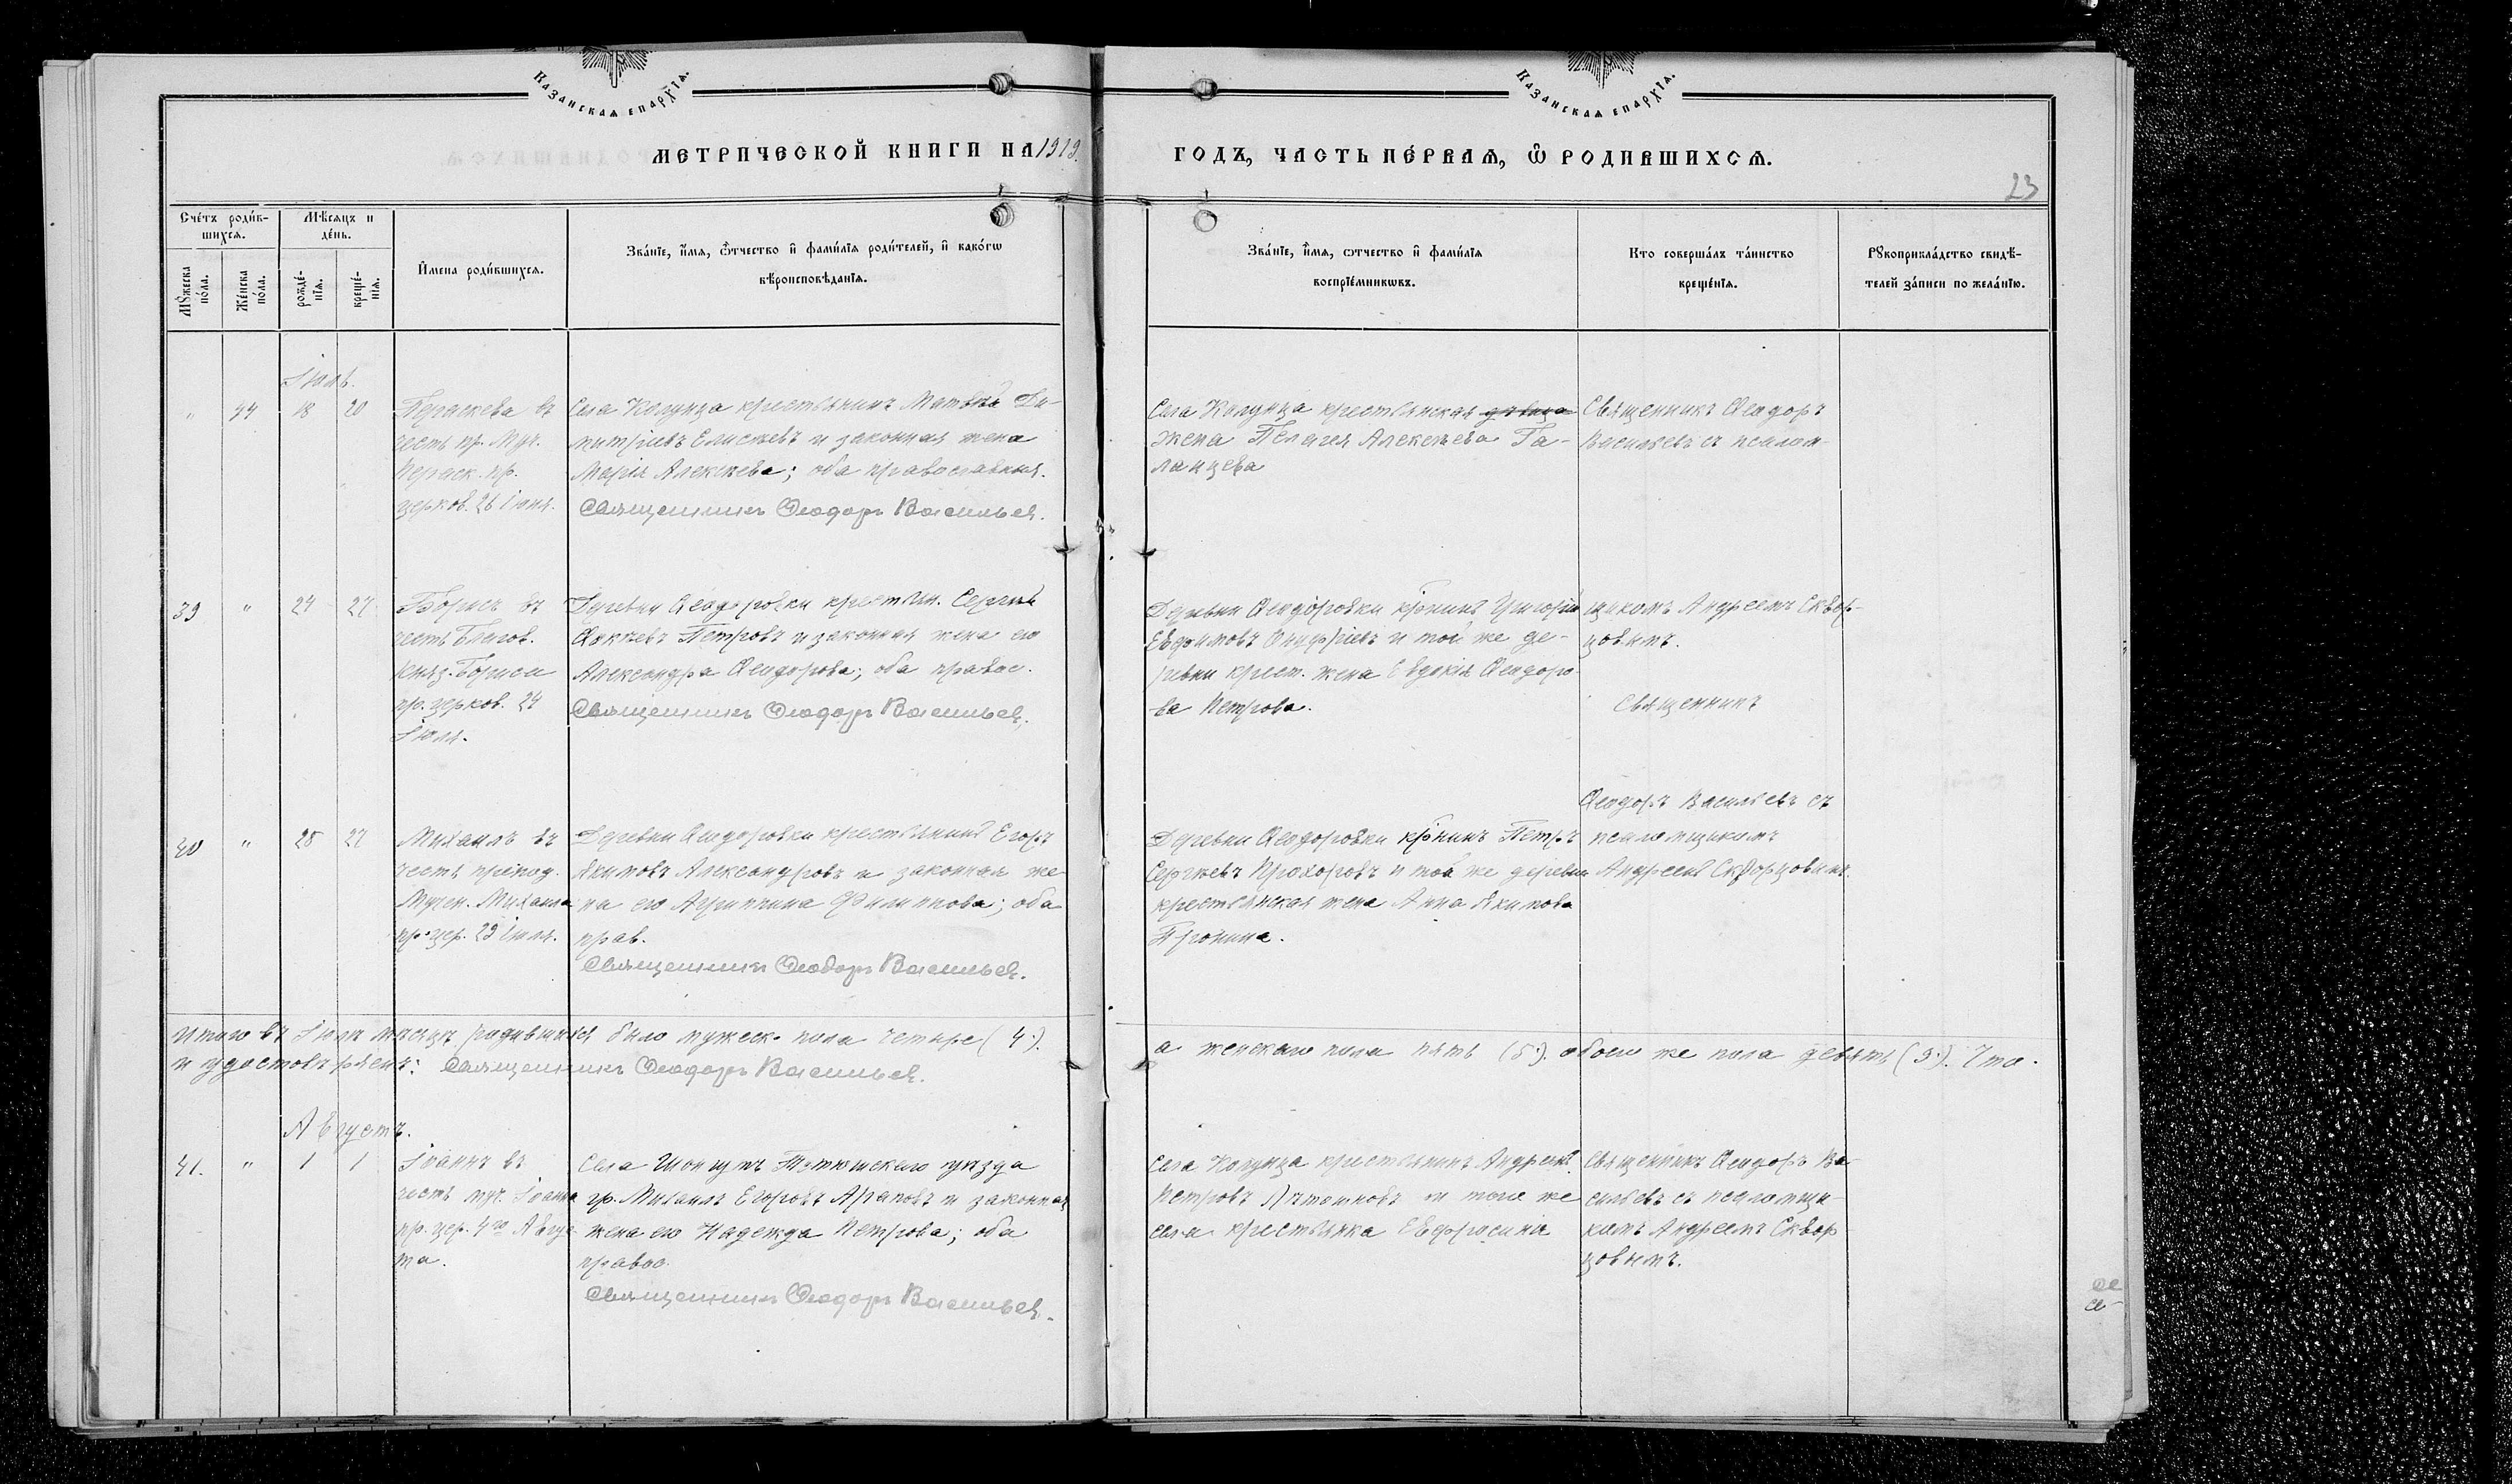 Казанская епархїя.
Казанская епархїя.
МЕТРИЧЕСКОЙ КНИГИ НА 1919
ГОДЪ, ЧАСТЬ ПЕ́РВАЯ, Ѽ РОДИВШИХСЯ.
23
Сче́тъ роди́в-
шихся.
Мѣ́сяцъ и
де́нь.
Мꙋ́жеска
по́ла.
Же́нска
по́ла.
рожде́-
нїя.
креще́-
нїя.
И҆мена роди́вшихся.
Зва́нїе, и҆́мя, ѻ҆́тчество и҆ фами́лїя роди́телей, и҆ како́гѡ
вѣроисповѣ́данїя.
Зва́нїе, и҆́мя, ѻтчество и҆ фами́лїя
воспрїе́мникѡвъ.
Кто соверша́лъ та́инство
креще́нїя.
Рꙋкоприкла́дство свидѣ́-
телей за́писи по жела́нїю.
Іюль.
" 44 18 20
Параскева въ
честь пр. Муч.
Параск. пр.
церков. 26 Іюля.
Села Колунца крестьянинъ Матвѣй Ди-
митріевъ Елисѣевъ и законная жена
Марія Алексѣева; оба православныя.
Священникъ Ѳеодоръ Васильев.
Села Колунца крестьянская девица
жена Пелагея Алексѣева Га-
ланцева
Священникъ Ѳеодоръ
Васильевъ съ псалом-
39 " 24 27
Борисъ въ
честь Благов.
Княз. Бориса
пр. церков. 24
Іюля.
Деревни Ѳеодоровки крестьян. Сергѣй
Петровъ и законная жена его
Александра Ѳеодорова; оба правос.
Священникъ Ѳеодоръ Васильев.
Деревни Ѳеодоровки кр-нинъ Григорій
Евфимовъ Онуфріевъ и той же де-
ревни крест. жена Евдокія Ѳеодоро-
ва Петрова.
щикомъ Андреемъ Сквор-
цовымъ.
Священникъ
Ѳеодоръ Васильевъ съ
псаломщикомъ
Андреемъ Скворцовымъ.
40 " 25 27
Михаилъ въ
честь препод.
Мучен. Михаила
пр. цер. 29 Іюля.
Деревни Ѳеодоровки крестьянинъ Егоръ
Якимовъ Александровъ и законная же-
на его Агриппина Филиппова; оба
прав.
Священникъ Ѳеодоръ Васильев.
Деревни Ѳеодоровки кр-нинъ Петръ
Сергѣевъ Прохоровъ и той же деревни
крестьянская жена Анна Якимова
Пронина.
Итого въ Іюлѣ мѣсяцѣ родившихся было мужеск. пола четыре (4).
а женскаго пола пять (5). обоего же пола девять (9). Что
и удостовѣряемъ: Священникъ Ѳеодоръ Васильев.
Августъ.
41. " 1 1
Іоаннъ въ
честь муч. Іоанна
пр. цер. 4го Авгус-
та.
Села Шонгутъ Тетюшскаго уѣзда
гр. Михаилъ Егоровъ Араповъ и законная
жена его Надежда Петрова; оба
правос.
Священникъ Ѳеодоръ Васильев.
Села Колунца крестьянинъ Андрей
Петровъ и того же
села крестьянка Евфросинія
Священникъ Ѳеодоръ Ва-
сильевъ съ псаломщи-
комъ Андреемъ Сквор-
цовымъ.